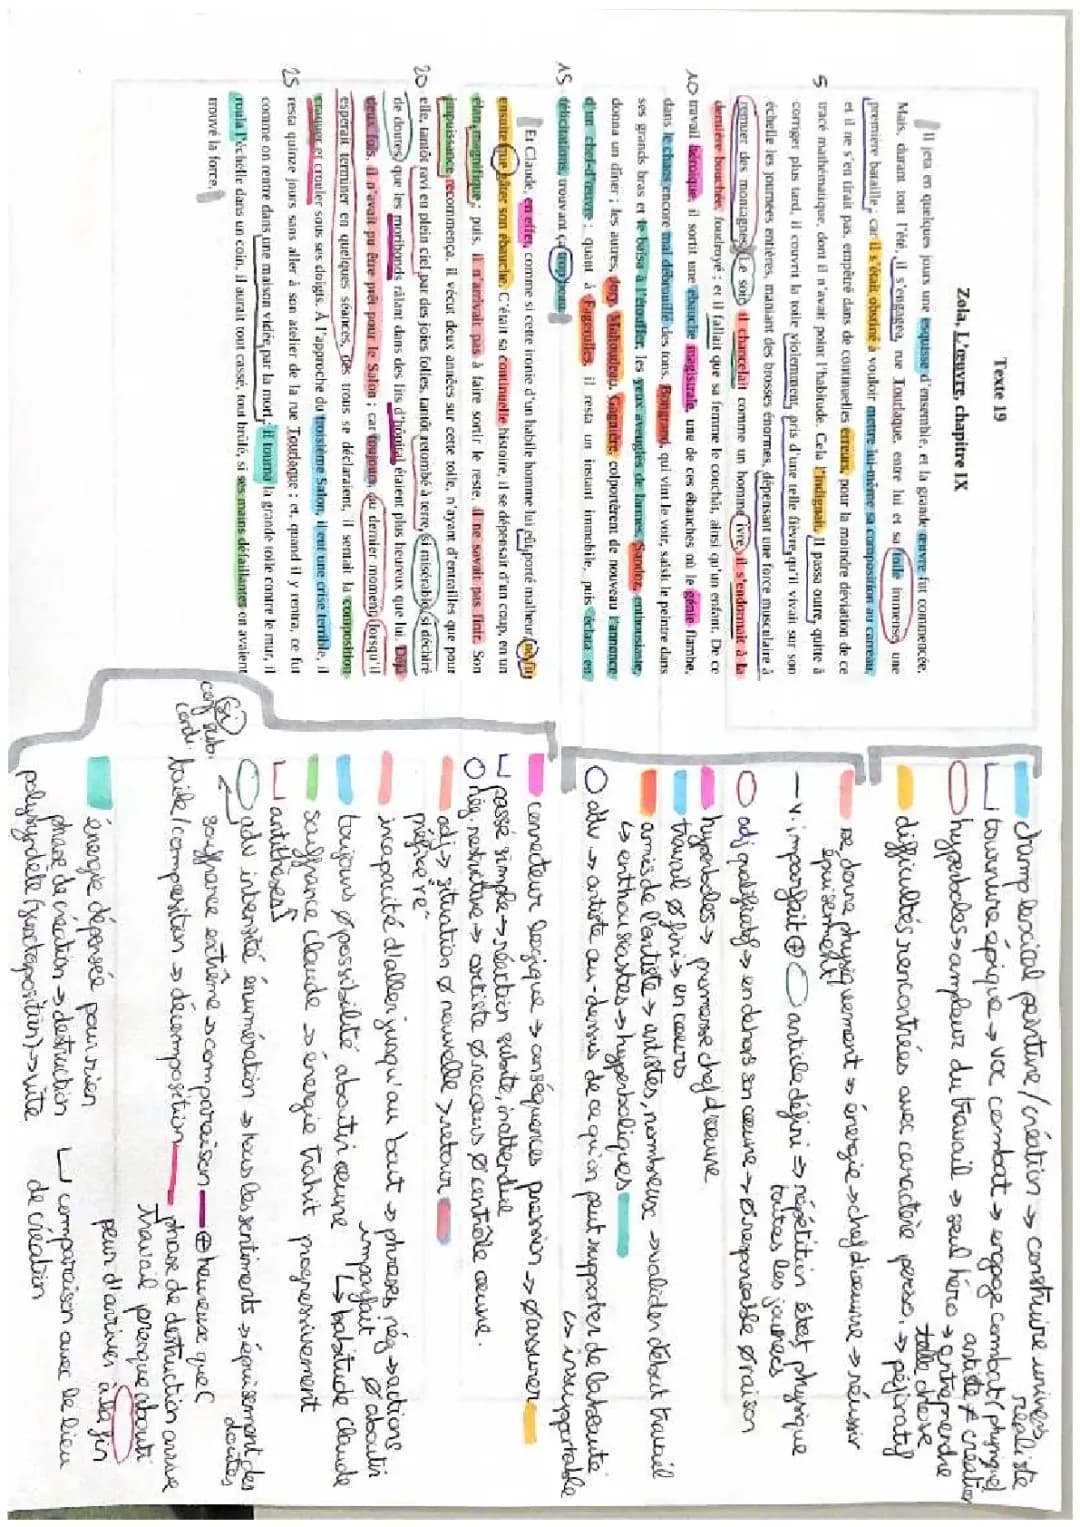 Texte 19
Zola, L'œuvre, chapitre IX
Il jeta en quelques jours une esquisse d'ensemble, et la grande œuvre fut commencée.
Mais, durant tout l'été, il s'engagea, rue Tourlaque, entre lui et sa toile immense, une
première bataille ; car il s'était obstiné à vouloir mettre lui-même sa composition au carreau,
et il ne s'en tirait pas, empêtré dans de continuelles erreurs, pour la moindre déviation de ce
5 tracé mathématique, dont il n'avait point l'habitude. Cela l'indignait. Il passa outre, quitte à
corriger plus tard, il couvrit la toile violemment, pris d'une telle fièvre, qu'il vivait sur son
échelle les journées entières, maniant des brosses énormes, dépensant une force musculaire à
remuer des montagnes. Le soir, il chancelait comme un homme ivre, il s'endormait à la
dernière bouchée, foudroyé ; et il fallait que sa femme le couchât, ainsi qu'un enfant. De ce
10 travail héroïque, il sortit une ébauche magistrale, une de ces ébauches où le génie flambe,
dans le chaos encore mal débrouillé des tons. Bongrand, qui vint le voir, saisit le peintre dans
ses grands bras et le baisa à l'étouffer, les yeux aveuglés de larmes. Sandoz, enthousiaste,
donna un dîner ; les autres, Jory, Mahoudeau, Gagnière, colportèrent de nouveau l'annonce
d'un chef-d'œuvre ; quant à Fagerolles, il resta un instant immobile, puis éclata en
15 félicitations, trouvant ça trop beau.
Et Claude, en effet, comme si cette ironie d'un habile homme lui eût porté malheur, ne fit
ensuite que gâter son ébauche. C'était sa continuelle histoire, il se dépensait d'un coup, en un
élan magnifique ; puis, il n'arrivait pas à faire sortir le reste, il ne savait pas finir. Son
impuissance recommença, il vécut deux années sur cette toile, n'ayant d'entrailles que pour
20 elle, tantôt ravi en plein ciel par des joies folles, tantôt retombé à terre, si misérable, si déchiré
de doutes, que les moribonds râlant dans des lits d'hôpital étaient plus heureux que lui. Déjà
deux fois, il n'avait pu être prêt pour le Salon ; car toujours, au dernier moment, lorsqu'il
espérait terminer en quelques séances, des trous se déclaraient, il sentait la composition
craquer et crouler sous ses doigts. À l'approche du troisième Salon, il eut une crise terrible, il
25 resta quinze jours sans aller à son atelier de la rue Tourlaque ; et, quand il y rentra, ce fut
comme on rentre dans une maison vidée par la mort, il tourna la grande toile contre le mur, il
roula l'échelle dans un coin, il aurait tout cassé, tout brûlé, si ses mains défaillantes en avaient
trouvé la force.
champ lexical peinture/création → construire univers
réaliste
tournure épique → voc combat → engage combat (physique)
artiste ≠ création
hyperboles → ampleur du travail → seul héro → entreprendre
telle chose
difficultés rencontrées avec caractère perso. → péjoratif
se donne physiquement → énergie → chef d'œuvre → réussir
épuisement
- v. imparfait ⊕ article défini → répétition état physique
toutes les journées
adj qualificatifs → en dehors son œuvre → ø responsable ø raison
hyperboles → promesse chef d'œuvre
travail ø fini → en cours
amis de l'artiste → artistes, nombreux → valident début travail
↳ enthousiastes → hyperboliques
adv → artiste au-dessus de ce qu'on peut supporter de la beauté
↳ insupportable
connecteur logique → conséquences pression → ø assurer
passé simple → réaction subite, inattendue
nég. restrictive → artiste ø recours ø contrôle œuvre.
adj → situation ø nouvelle > retour
préfixe "re"
incapacité d'aller jusqu'au bout → phrases nég → actions
imparfait ø abouti
toujours ø possibilité aboutir œuvre ↳ habitude Claude
souffrance Claude → énergie trahit progressivement
antithèses
adv intensité énumération → tous les sentiments → épuisement des
doutes
(si)
conj sub.
cordi.
souffrance extrême → comparaison ⊕ heureuse que
toile/composition → décomposition phase de destruction arrive
travail presque abouti
énergie dépensée pour rien peur d'arriver à la fin
phase de création → destruction comparaison avec le lieu
polysyndète (juxtaposition) → vite de création